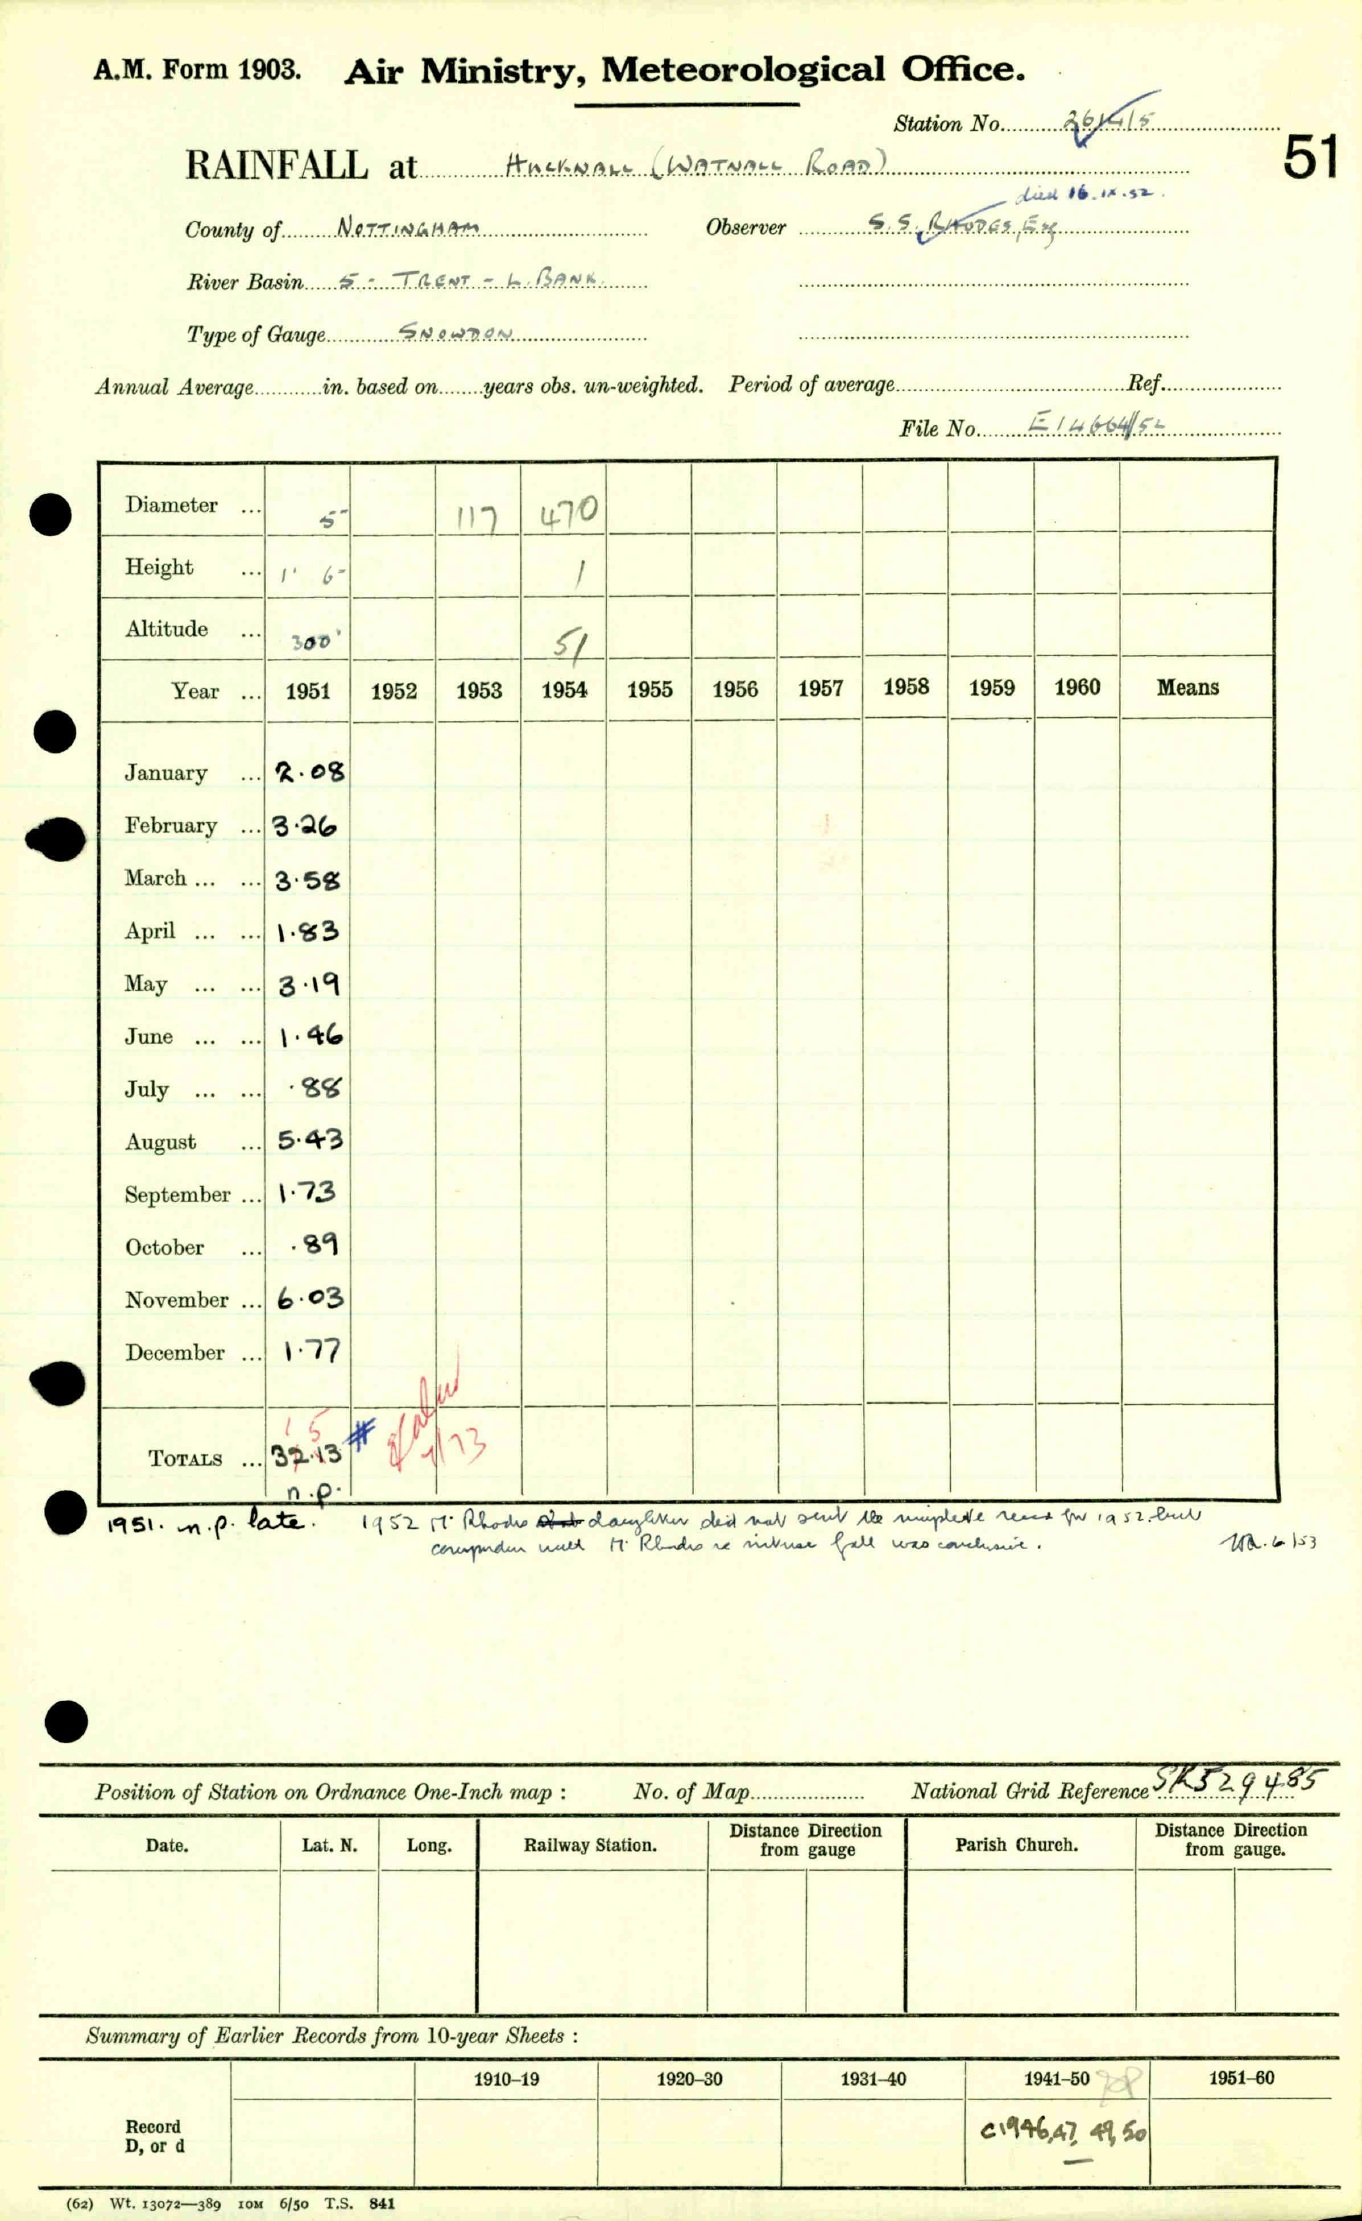 A.M. Form 1903. Air Ministry, Meteorological Office.
Station No. 2614/5
51
RAINFALL at HUCKNALL (WATNALL ROAD)
died 16.IX.52.
County of NOTTINGHAM Observer S.S. RHODES, Esq
River Basin 5 - TRENT - L. BANK.
Type of Gauge SNOWDON
Annual Average in. based on years obs. un-weighted. Period of average Ref.
File No. E14664/52
Diameter ... 5" 117 470
Height ... 1' 6" 1
Altitude ... 300' 51
Year ... 1951 1952 1953 1954 1955 1956 1957 1958 1959 1960 Means
January ... 2.08
February ... 3.26
March ... ... 3.58
April ... ... 1.83
May ... ... 3.19
June ... ... 1.46
July ... ... .88
August ... 5.43
September ... 1.73
October ... .89
November ... 6.03
December ... 1.77
1 5
TOTALS ... 32.13 #
7/73
n.p.
1951. n.p. late. 1952 Mr Rhodes daughter did not send the complete record for 1952 but
Mr Rhodes re intense fall was conclusive. 6/53
Position of Station on Ordnance One-Inch map : No. of Map National Grid Reference SK529485
Date. Lat. N. Long. Railway Station. Distance from Direction gauge Parish Church. Distance from Direction gauge.
Summary of Earlier Records from 10-year Sheets :
1910-19 1920-30 1931-40 1941-50 1951-60
Record
D, or d
c1946,47, 49,50
(62) Wt. 13072—389 10M 6/50 T.S. 841